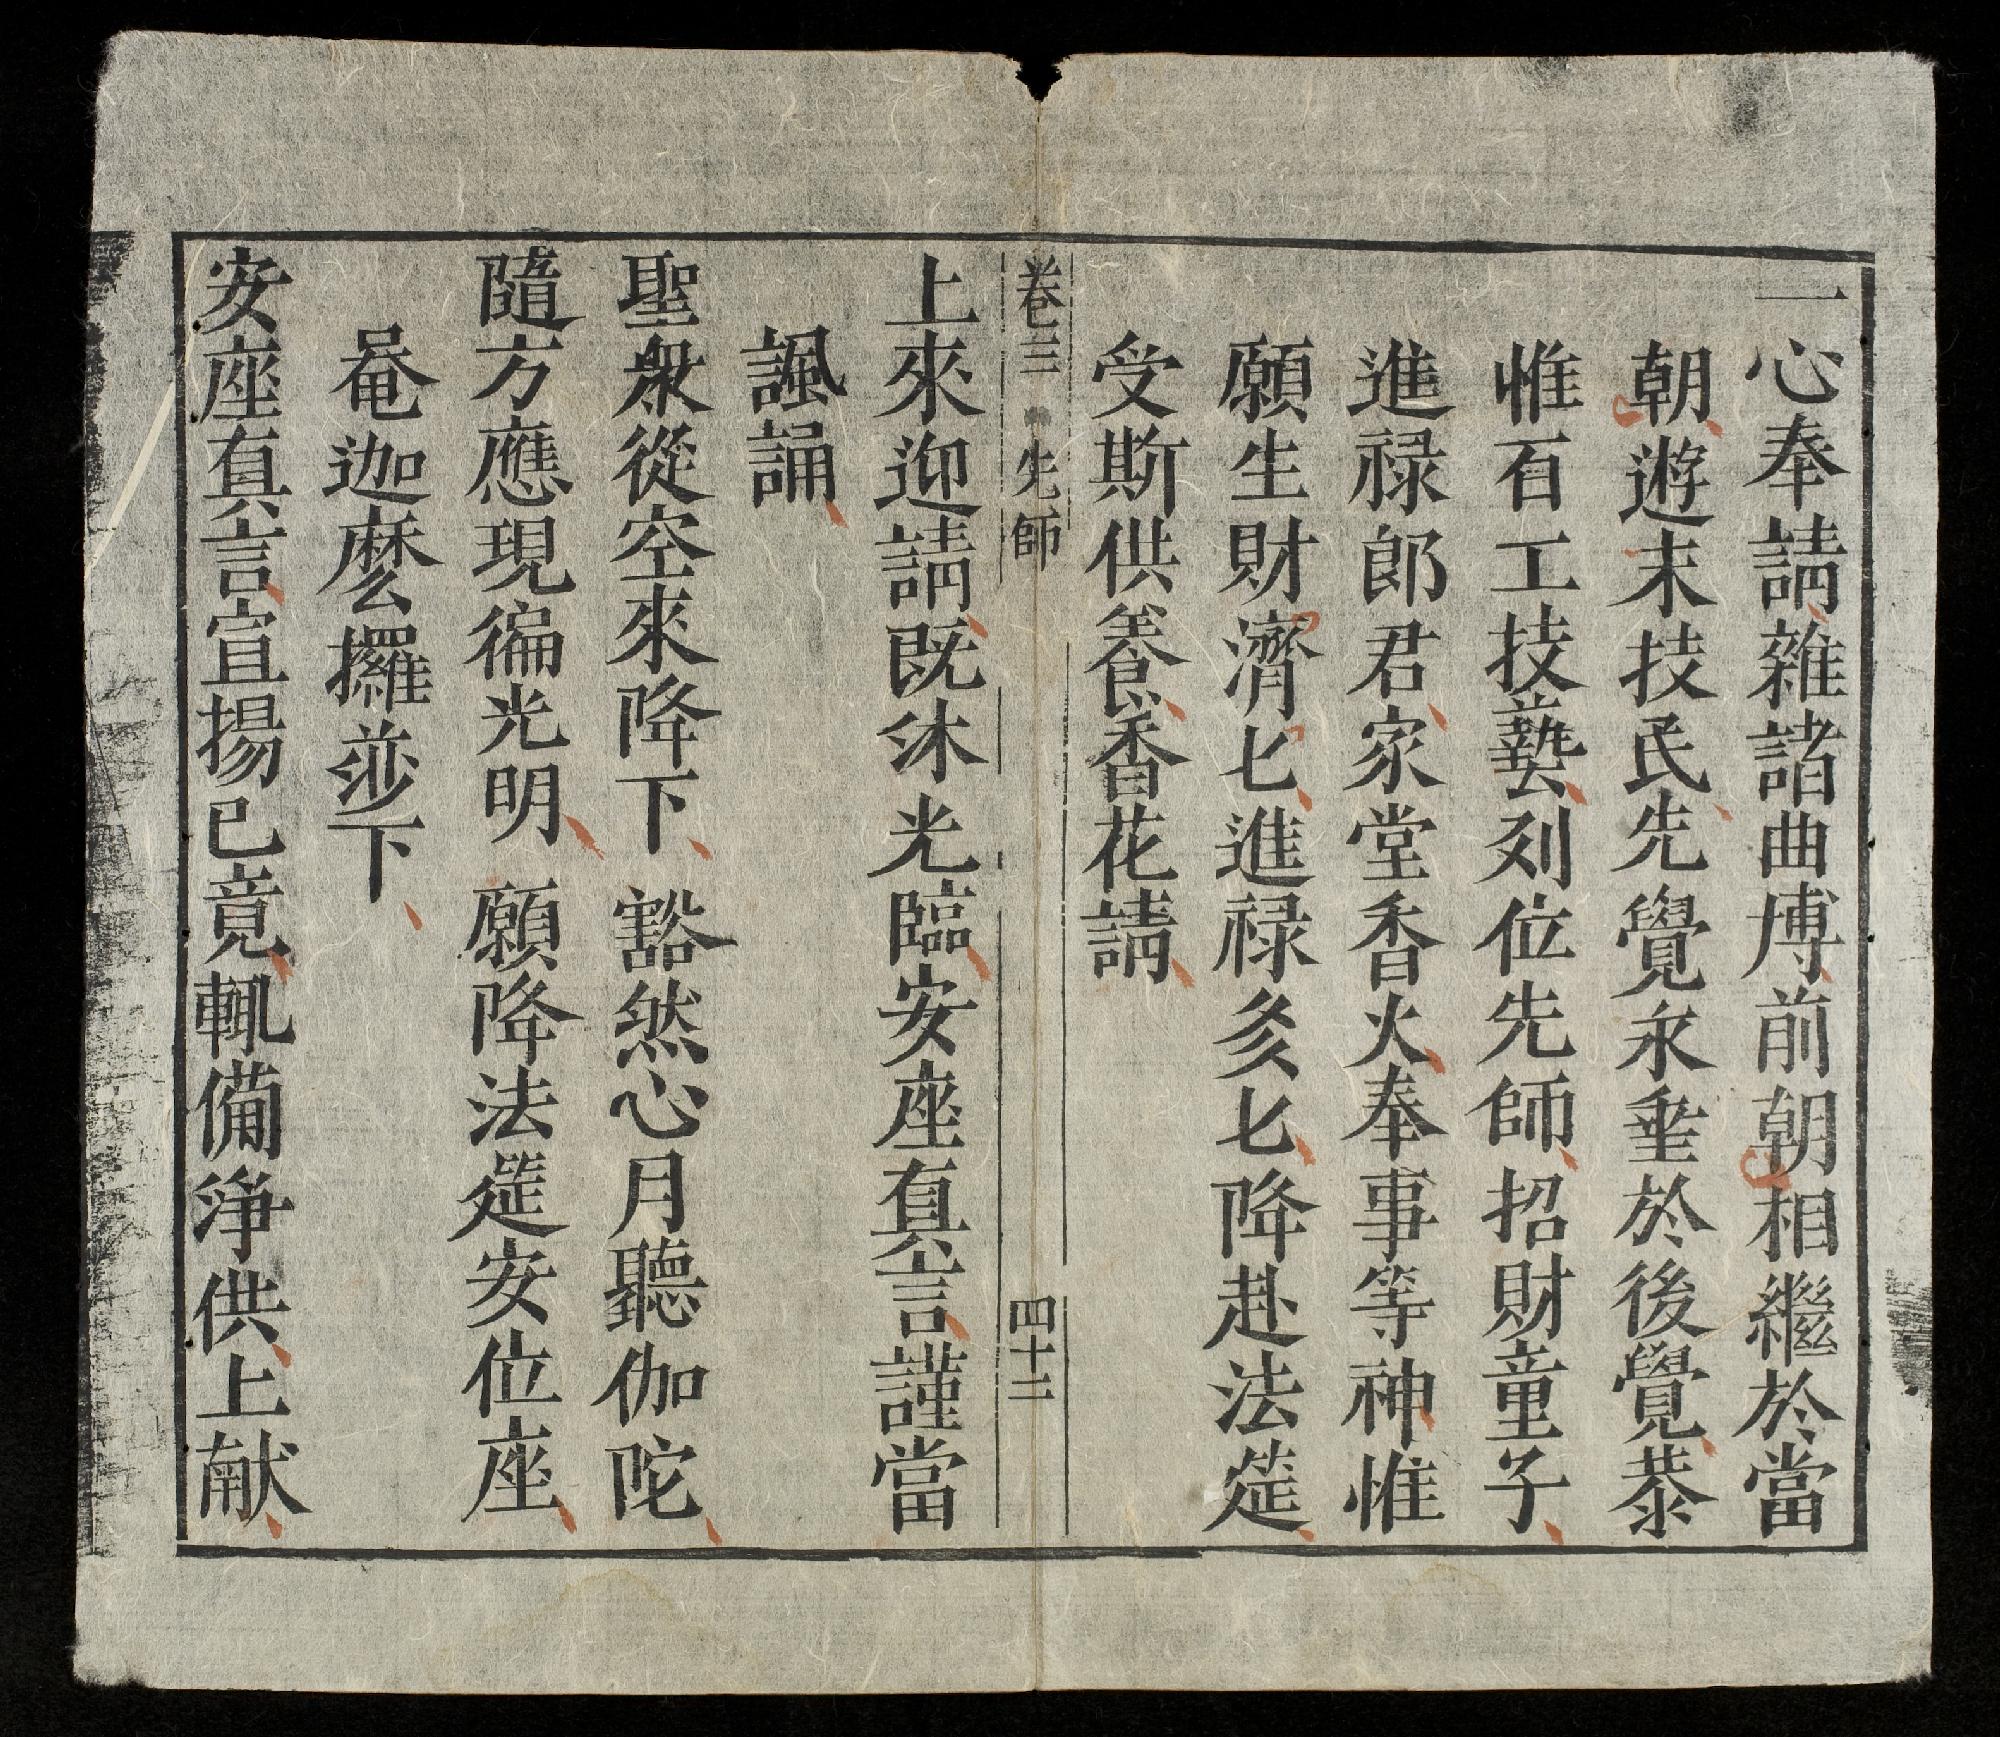 一心奉請雜諸曲博前朝相繼於當
朝遊末技民先覺永垂於後覺恭
惟百工技藝列位先師招財童子
進祿郎君家堂香火奉事等神惟
願生財濟匕進祿多匕降赴法筵
受斯供養香花請
卷三 先師 四十二
上來迎請既沐光臨安座真言謹當
諷誦
聖衆從空來降下 豁然心月聽伽陀
隨方應現徧光明 願降法筵安位座
唵迦麽攞莎下
安座真言宣揚已竟輒備淨供上献